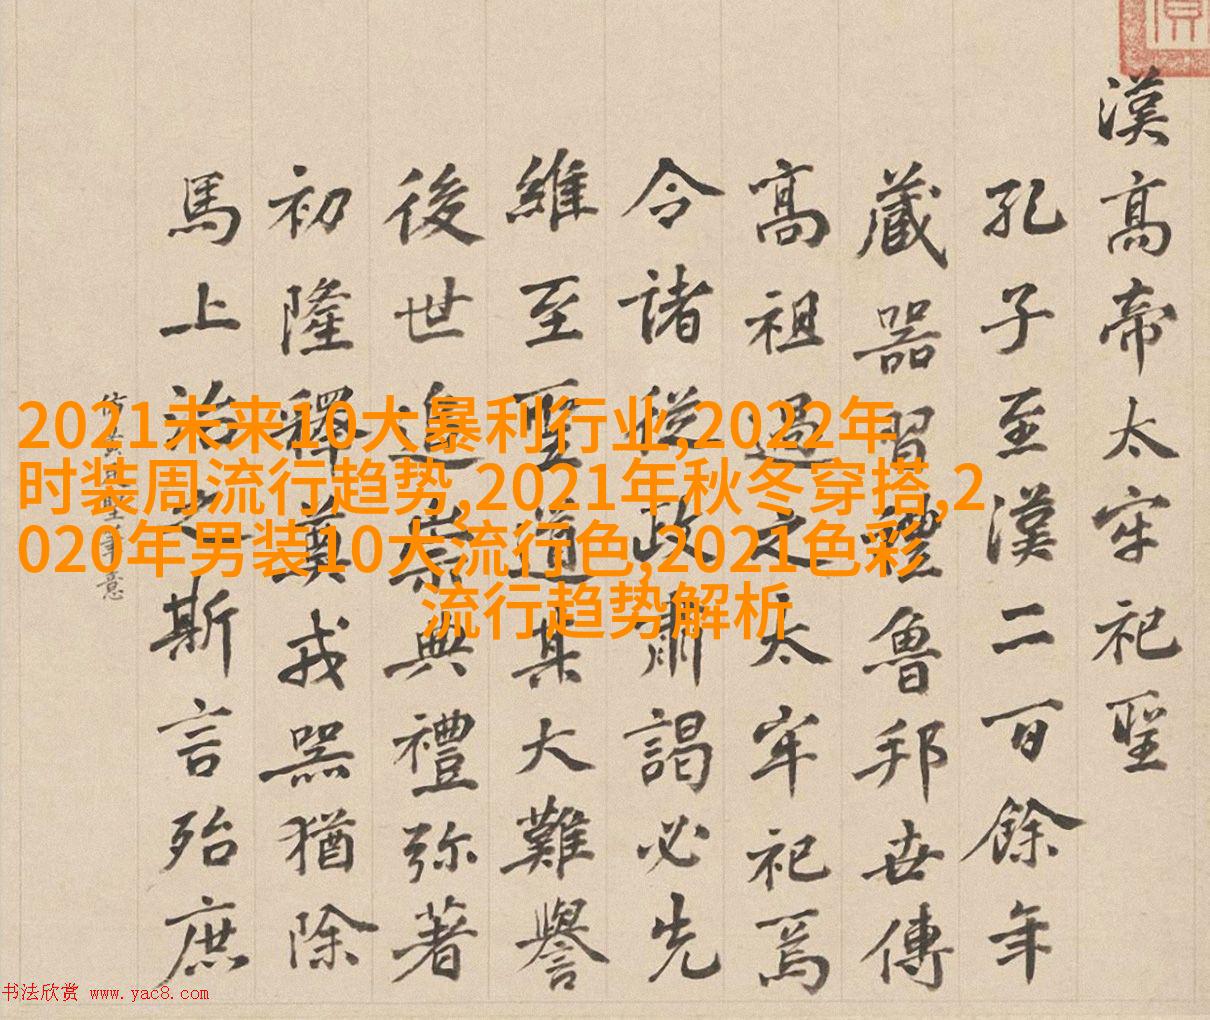 漢高帝太牢祀聖
孔子至漢二百餘年
藏器習禮魯邦世傳
高祖過之太牢祀焉
令諸從政肅謁必先
維至聖道其大難譽
後世追崇典禮弥著
初隆釋奠戎器猶除
馬上治之斯言殆庶
意
2021未来10大暴利行业,2022年
时装周流行趋势,2021年秋冬穿搭,2
020年男装10大流行色,2021色彩
流行趋势解析
书法欣赏 www.yac8.com